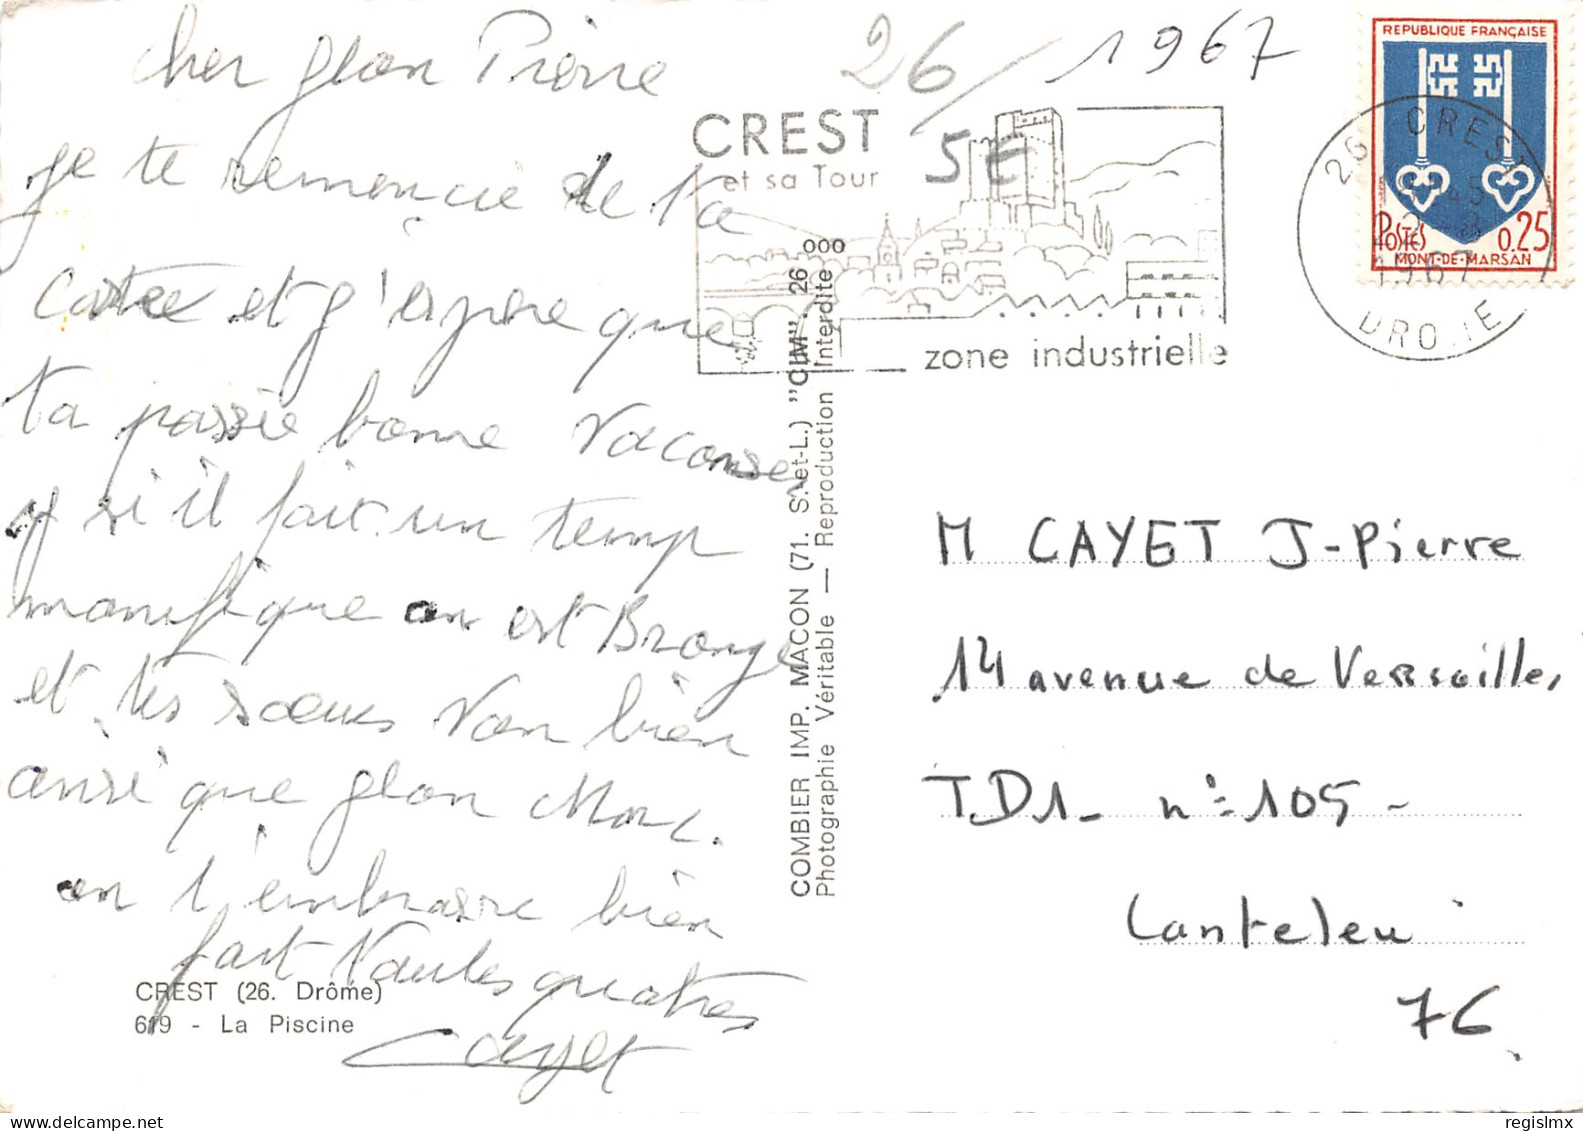 cher Jean Pierre
je te remencie de la
carte et j'espere que
ta passée bonne vacanse
y si il fait un temp
manifique on est Bronzé
et tes sœurs von bien
ansi que Jean Marc.
on t'embrasse bien
fort Nautes quatres
Cayet
CREST (26. Drôme)
619 - La Piscine
COMBIER IMP. MACON (71. S.-et-L.) "CIM". 26 000
Photographie Véritable — Reproduction Interdite
26/ 1967
5E
CREST
et sa Tour
zone industrielle
26 CREST
1967
DROME
REPUBLIQUE FRANÇAISE
POSTES 0,25
MONT-DE-MARSAN
M CAYET J-Pierre
14 avenue de Versailles
T.D1- n°=105-
Canteleu
76
regislmx